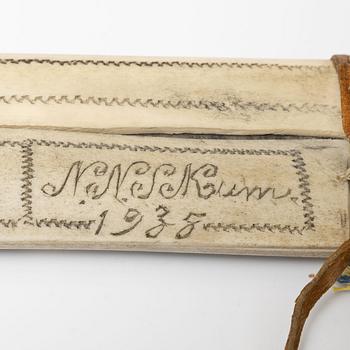 N.N.S. Kum.
1938